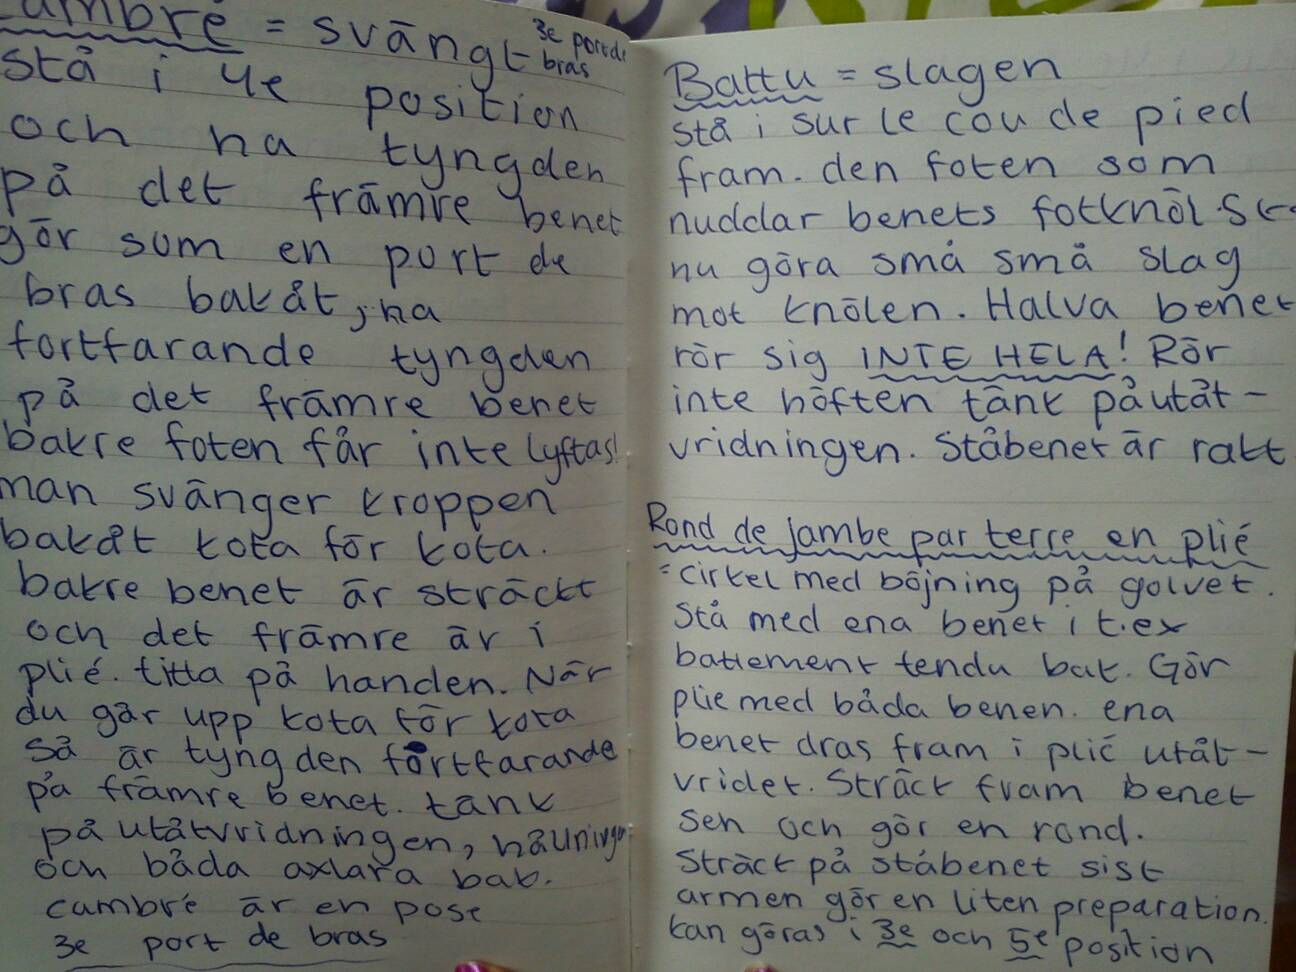 Cambré = svängt 3e port de
bras
stå i 4e position
och ha tyngden
på det främre benet
gör som en port de
bras bakåt, ha
fortfarande tyngden
på det främre benet
bakre foten får inte lyftas!
man svänger kroppen
bakåt kota för kota.
bakre benet är sträckt
och det främre är i
plié. titta på handen. När
du går upp kota för kota
så är tyngden fortfarande
på främre benet. tänk
på utåtvridningen, hållningen
och båda axlara bak.
cambré är en pose
3e port de bras
Battu = slagen
stå i sur le cou de pied
fram. den foten som
nuddar benets fotknöl. Ska
nu göra små små slag
mot knölen. Halva benet
rör sig INTE HELA! Rör
inte höften tänk på utåt-
vridningen. Ståbenet är rakt
Rond de jambe par terre en plié
= cirkel med böjning på golvet.
Stå med ena benet i t.ex
battement tendu bak. Gör
plie med båda benen. ena
benet dras fram i plié utåt-
vridet. Sträck fram benet
sen och gör en rond.
Sträck på ståbenet sist
armen gör en liten preparation.
kan göras i 3e och 5e position